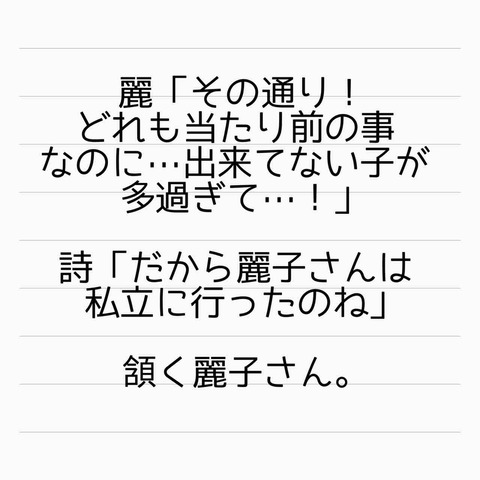 麗「その通り！
どれも当たり前の事
なのに…出来てない子が
多過ぎて…！」
詩「だから麗子さんは
私立に行ったのね」
頷く麗子さん。